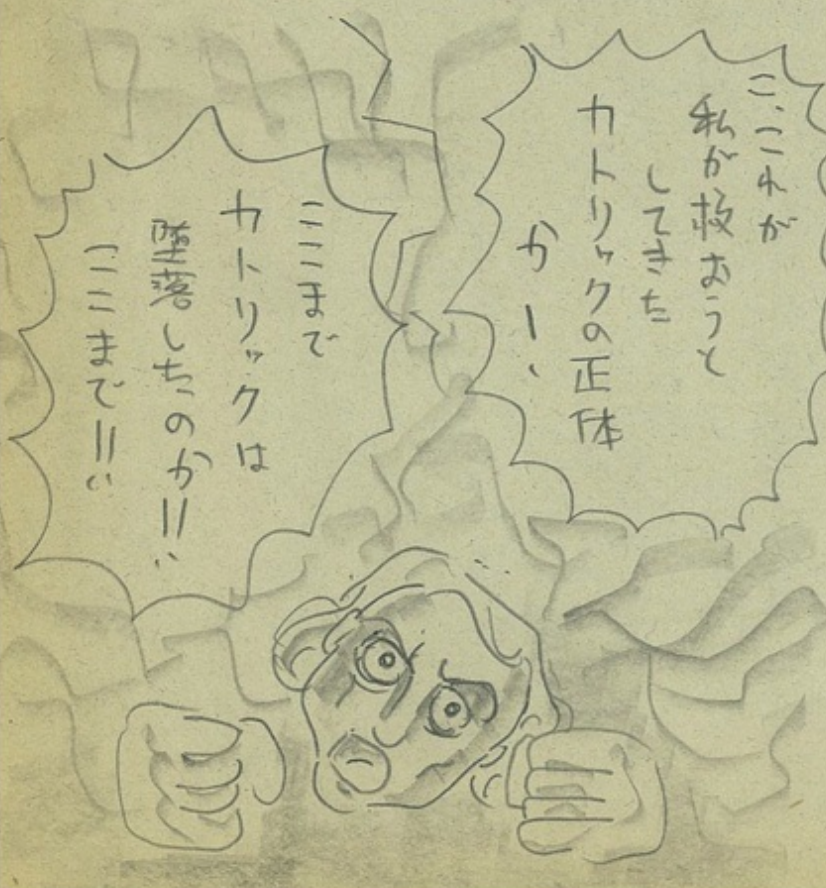 こ、これが
私が救おうと
してきた
カトリックの正体
かー、
ここまで
カトリックは
堕落したのか!!
ここまで!!